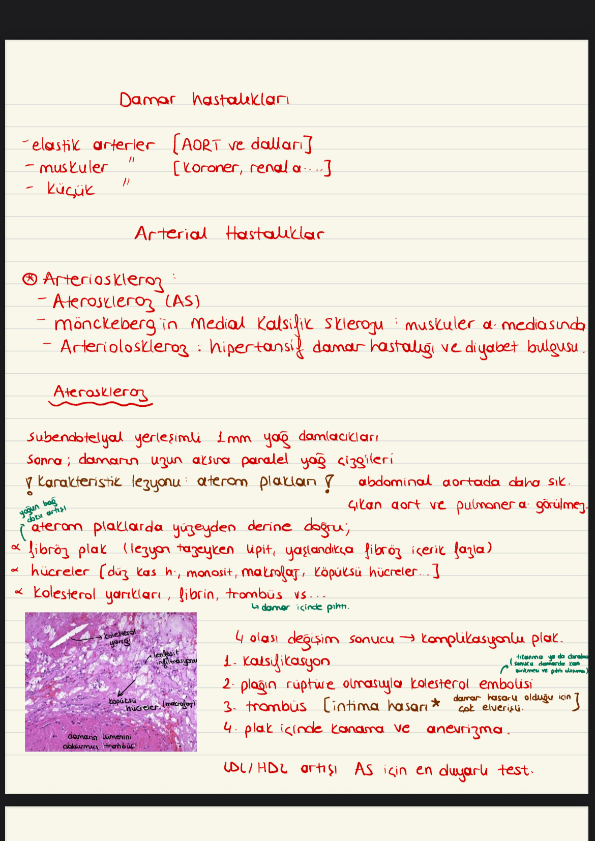 Damar hastalıkları
- elastik arterler [AORT ve dalları]
- muskuler " [koroner, renal a....]
- küçük "
Arterial Hastalıklar
* Arterioskleroz :
- Ateroskleroz (AS)
- Mönckeberg'in Medial Kalsifik Sklerozu : muskuler a. mediasında
- Arterioloskleroz : hipertansif damar hastalığı ve diyabet bulgusu.
Ateroskleroz
subendotelyal yerleşimli 1mm yağ damlacıkları
sonra ; damarın uzun aksına paralel yağ çizgileri
! Karakteristik lezyonu : aterom plakları ! abdominal aortada daha sık.
çıkan aort ve pulmoner a. görülmez.
yoğun bağ
doku artışı
aterom plaklarda yüzeyden derine doğru;
∝ fibröz plak (lezyon tazeyken lipit, yaşlandıkça fibröz içerik fazla)
∝ hücreler [düz kas h., monosit, makrofaj, köpüksü hücreler...]
∝ kolesterol yarıkları, fibrin, trombüs vs...
↳ damar içinde pıhtı.
kolesterol
yarığı
lenfosit
infiltrasyonu
köpüksü
hücreler (macrofaj)
damarın lümenini
doldurmuş trombüs
4 olası değişim sonucu → komplikasyonlu plak.
1. kalsifikasyon
tıkanma ya da daralma
sonucu damarda kan
birikmesi ve pıhtı oluşumu
2. plağın rüptüre olmasıyla kolesterol embolisi
3. trombüs [intima hasarı * damar hasarlı olduğu için
çok elverişli.]
4. plak içinde kanama ve anevrizma.
LDL/HDL artışı AS için en duyarlı test.